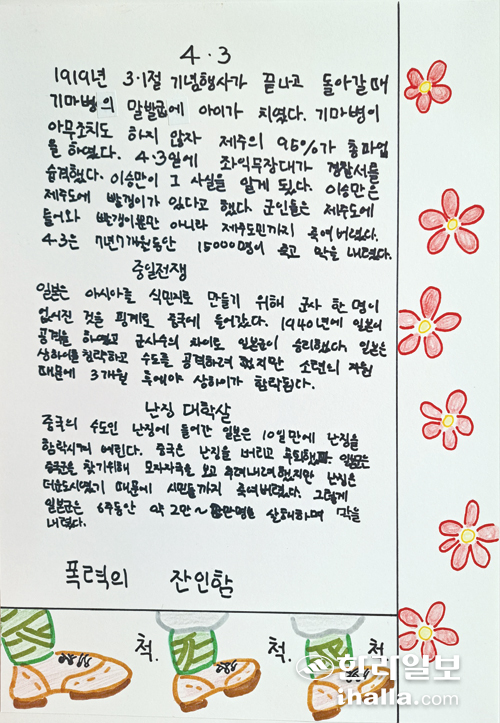 4·3
1919년 3·1절 기념행사가 끝나고 돌아갈 때
기마병의 말발굽에 아이가 치였다. 기마병이
아무조치도 하지 않자 제주의 95%가 총파업
을 하였다. 4·3일에 좌익무장대가 경찰서를
습격했다. 이승만이 그 사실을 알게 됐다. 이승만은
제주도에 빨갱이가 있다고 했다. 군인들은 제주도에
들어와 빨갱이뿐만 아니라 제주도민까지 죽여버렸다.
4·3은 7년7개월동안 15000명이 죽고 막을 내렸다.
중일전쟁
일본은 아시아를 식민지로 만들기 위해 군사 한명이
없어진 것을 핑계로 중국에 들어갔다. 1940년에 일본이
공격을 하였고 군사수의 차이로 일본군이 승리했다. 일본은
상하이를 침략하고 수도를 공격하려 했지만 소련의 지원
때문에 3개월 후에야 상하이가 함락된다.
난징 대학살
중국의 수도인 난징에 들어간 일본은 10일만에 난징을
함락시켜 버린다. 중국은 난징을 버리고 후퇴했다. 일본은
중국군을 찾기위해 모자자국을 보고 추려내려했지만 난징은
더운도시였기 때문에 시민들까지 죽여버렸다. 그렇게
일본군은 6주동안 약 2만~ 살해하며 막을
내렸다.
폭력의 잔인함
척. 척. 척
한라일보
ihalla.com